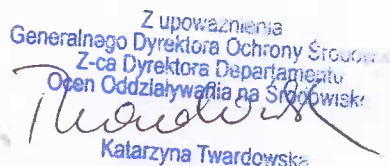 Z upoważnienia
Generalnego Dyrektora Ochrony Środow
Z-ca Dyrektora Departamentu
Ocen Oddziaływania na Środowisk
Twardowsk
Katarzyna Twardowska